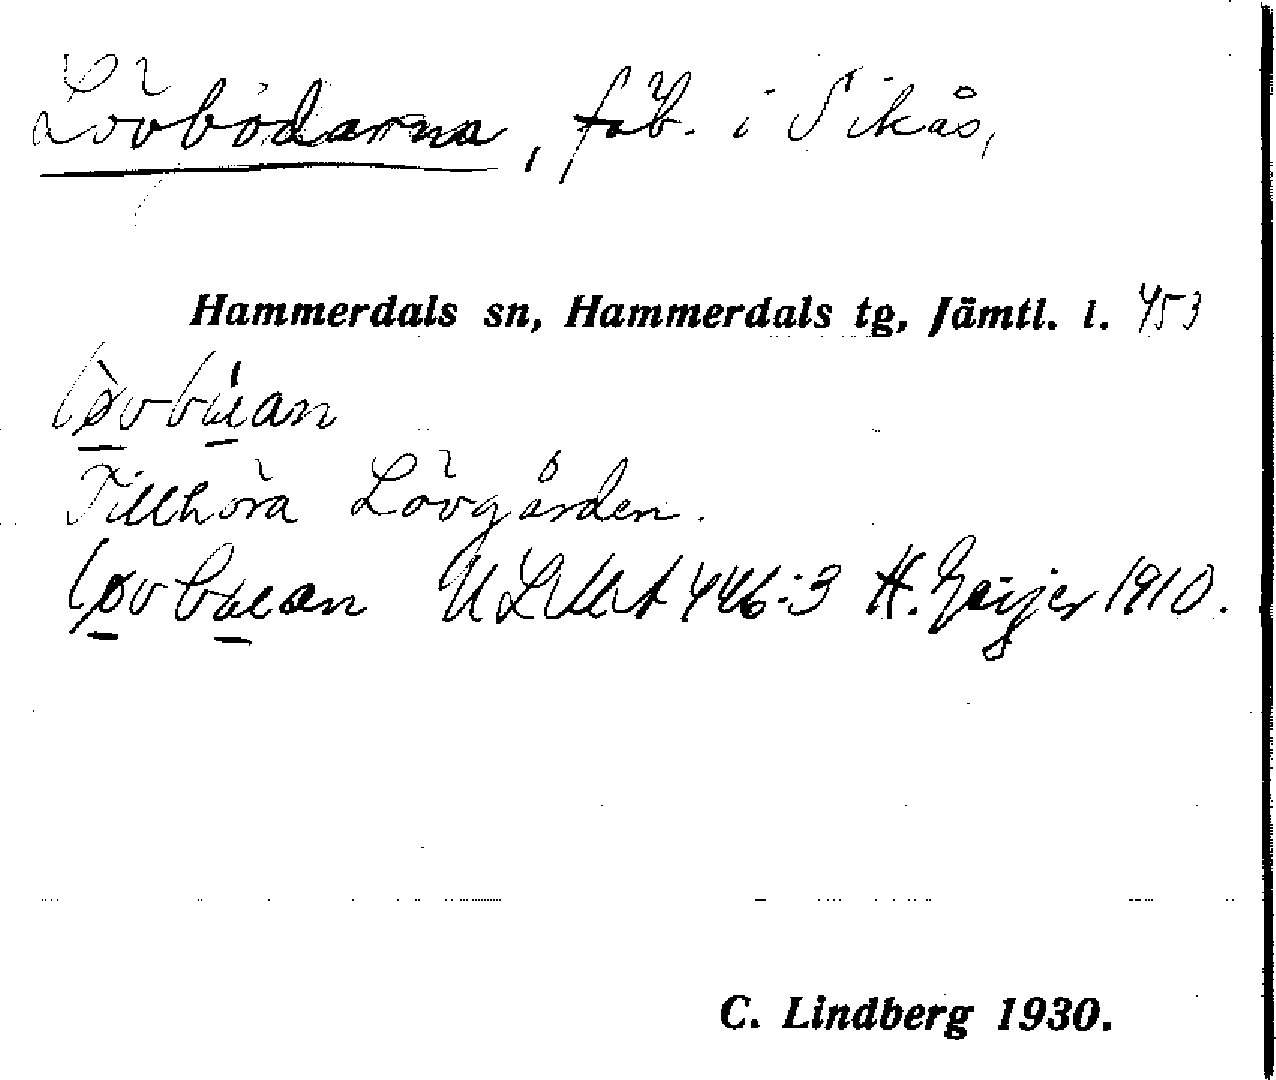 Lövbödarna, fäb. i Sikås,
Hammerdals sn, Hammerdals tg, Jämtl. l. 453
Tillhöra Lövgården.
ULMA 446:3 H. Geijer 1910.
C. Lindberg 1930.